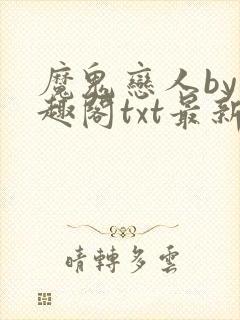 魔鬼戀人by
趣閣txt最新
晴轉多雲